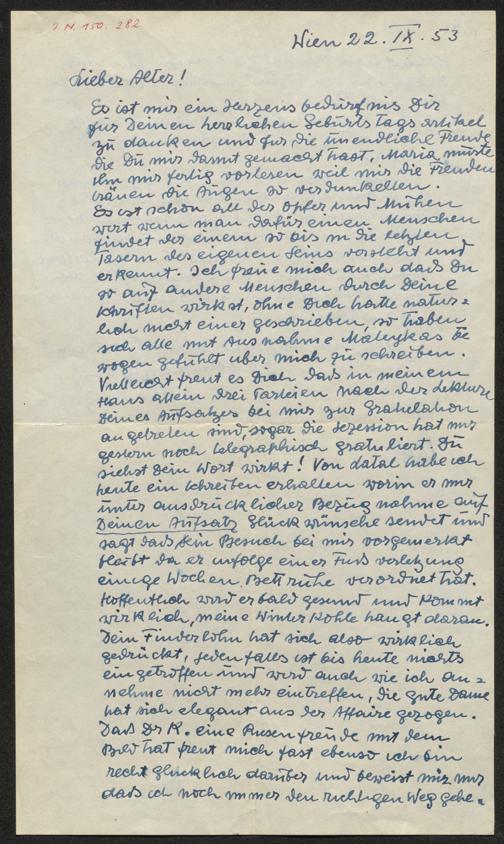 I.N. 150.282
Wien 22. IX. 53
Lieber Alter!
Es ist mir ein Herzensbedürfnis Dir
für Deinen herzlichen Geburtstags artikel
zu danken und für die unendliche Freude
die Du mir damit gemacht hast. Maria musste
ihn mir fertig vorlesen weil mir die Freuden
tränen die Augen so verdunkelten.
Es ist schon all der Opfer und Mühen
wert wenn man dafür einen Menschen
findet der einem so bis in die letzten
Fasern des eigenen Seins versteht und
erkennt. Ich freue mich auch dass Du
so auf andere Menschen durch Deine
Schriften wirkst, ohne Dich hätte natür=
lich nicht einer geschrieben, so haben
sich alle mit Ausnahme Matejkas be
wogen gefühlt über mich zu schreiben.
Vielleicht freut es Dich dass in meinem
Haus allein drei Parteien nach der Lektüre
Deines Aufsatzes bei mir zur Gratulation
angetreten sind, sogar die Sezession hat mir
gestern noch telegraphisch gratuliert. Du
siehst Dein Wort wirkt! Von habe ich
heute ein Schreiben erhalten worin er mir
unter ausdrücklicher Bezugnahme auf
Deinen Aufsatz Glückwünsche sendet und
sagt dass sein Besuch bei mir vorgemerkt
bleibt da er infolge einer Fuss verletzung
einige Wochen Bettruhe verordnet hat.
Hoffentlich wird er bald gesund und kommt
wirklich, meine Winterkohle hängt daran.
Dein Finderlohn hat sich also wirklich
gedrückt, jedenfalls ist bis heute nichts
eingetroffen und wird auch wie ich an=
nehme nicht mehr eintreffen, die gute Dame
hat sich elegant aus der Affaire gezogen.
Dass Dr K. eine Riesenfreude mit dem
Bild hat freut mich fast ebenso ich bin
recht glücklich darüber und beweist mir nur
dass ich noch immer den richtigen Weg gehe.